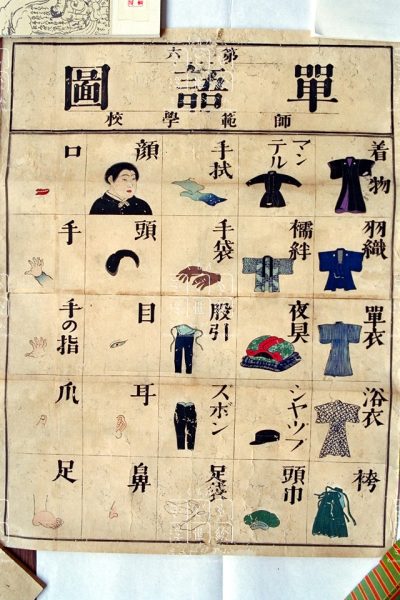 第六
單語圖
師範學校
着物
羽織
單衣
浴衣
袴
マンテル
襦絆
夜具
シヤツプ
頭巾
手拭
手袋
股引
ズボン
足袋
顔
頭
目
耳
鼻
口
手
手の指
爪
足